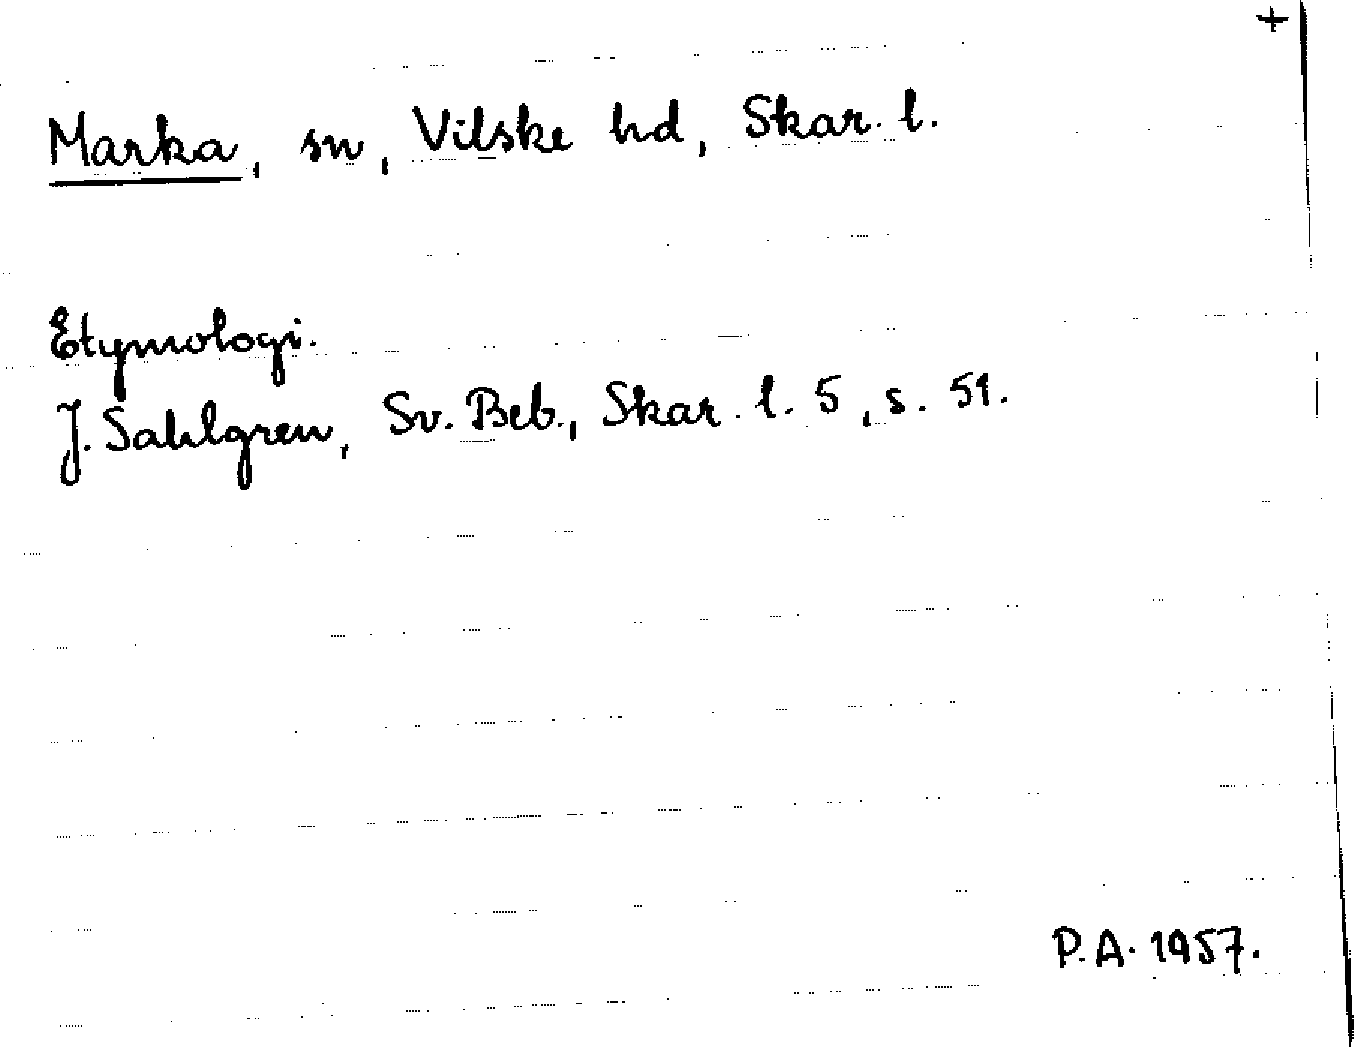 +
Marka, sn, Vilske hd, Skar. l.
Etymologi.
J. Sahlgren, Sv. Beb., Skar. l. 5, s. 51.
P. A. 1957.